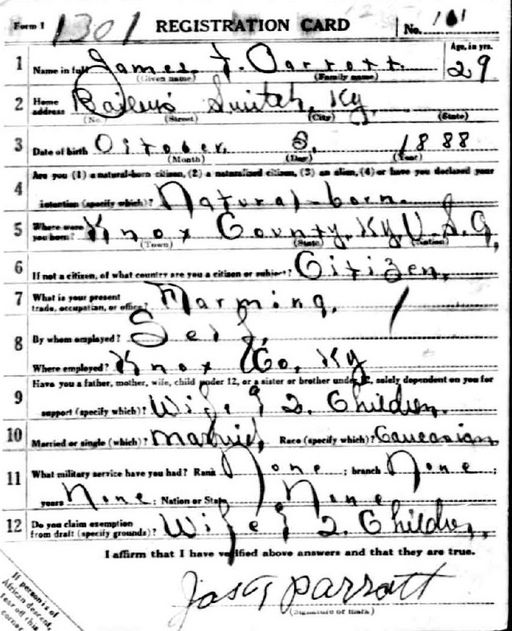 Form 1 1301 REGISTRATION CARD No. 101
1 Name in full James T. Parrott Age, in yrs. 29
(Given name) (Family name)
2 Home address Baileys Switch, Ky.
(No.) (Street) (City) (State)
3 Date of birth October, 8, 1888
(Month) (Day) (Year)
Are you (1) a natural-born citizen, (2) a naturalized citizen, (3) an alien, (4) or have you declared your
4 intention (specify which)? Natural-born.
5 Where were you born? Knox County, Ky U.S.A,
(Town) (State) (Nation)
6 If not a citizen, of what country are you a citizen or subject? Citizen,
7 What is your present trade, occupation, or office? Farming,
8 By whom employed? Self,
Where employed? Knox Co, Ky
9 Have you a father, mother, wife, child under 12, or a sister or brother under 12, solely dependent on you for
support (specify which)? Wife & 2. Children,
10 Married or single (which)? Married, Race (specify which)? Caucasian
11 What military service have you had? Rank None ; branch None ;
years None ; Nation or State None
12 Do you claim exemption from draft (specify grounds)? Wife & 2. Children,
I affirm that I have verified above answers and that they are true.
Parrott
(Signature or mark)
If person is of
African descent,
tear off this
corner